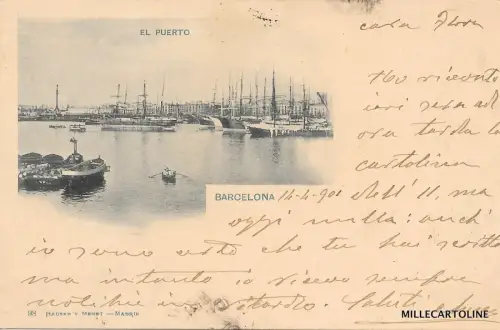 EL PUERTO
cara Flora
Ho ricevuto
ieri sera ad
ora tarda la
cartolina
BARCELONA 14-4-901 dell' 11, ma
oggi nulla: anch'
io sono certo che tu hai scritto
ma intanto io ricevo sempre
notizie in ritardo. Saluti
998 HAUSER Y MENET.—MADRID
MILLECARTOLINE